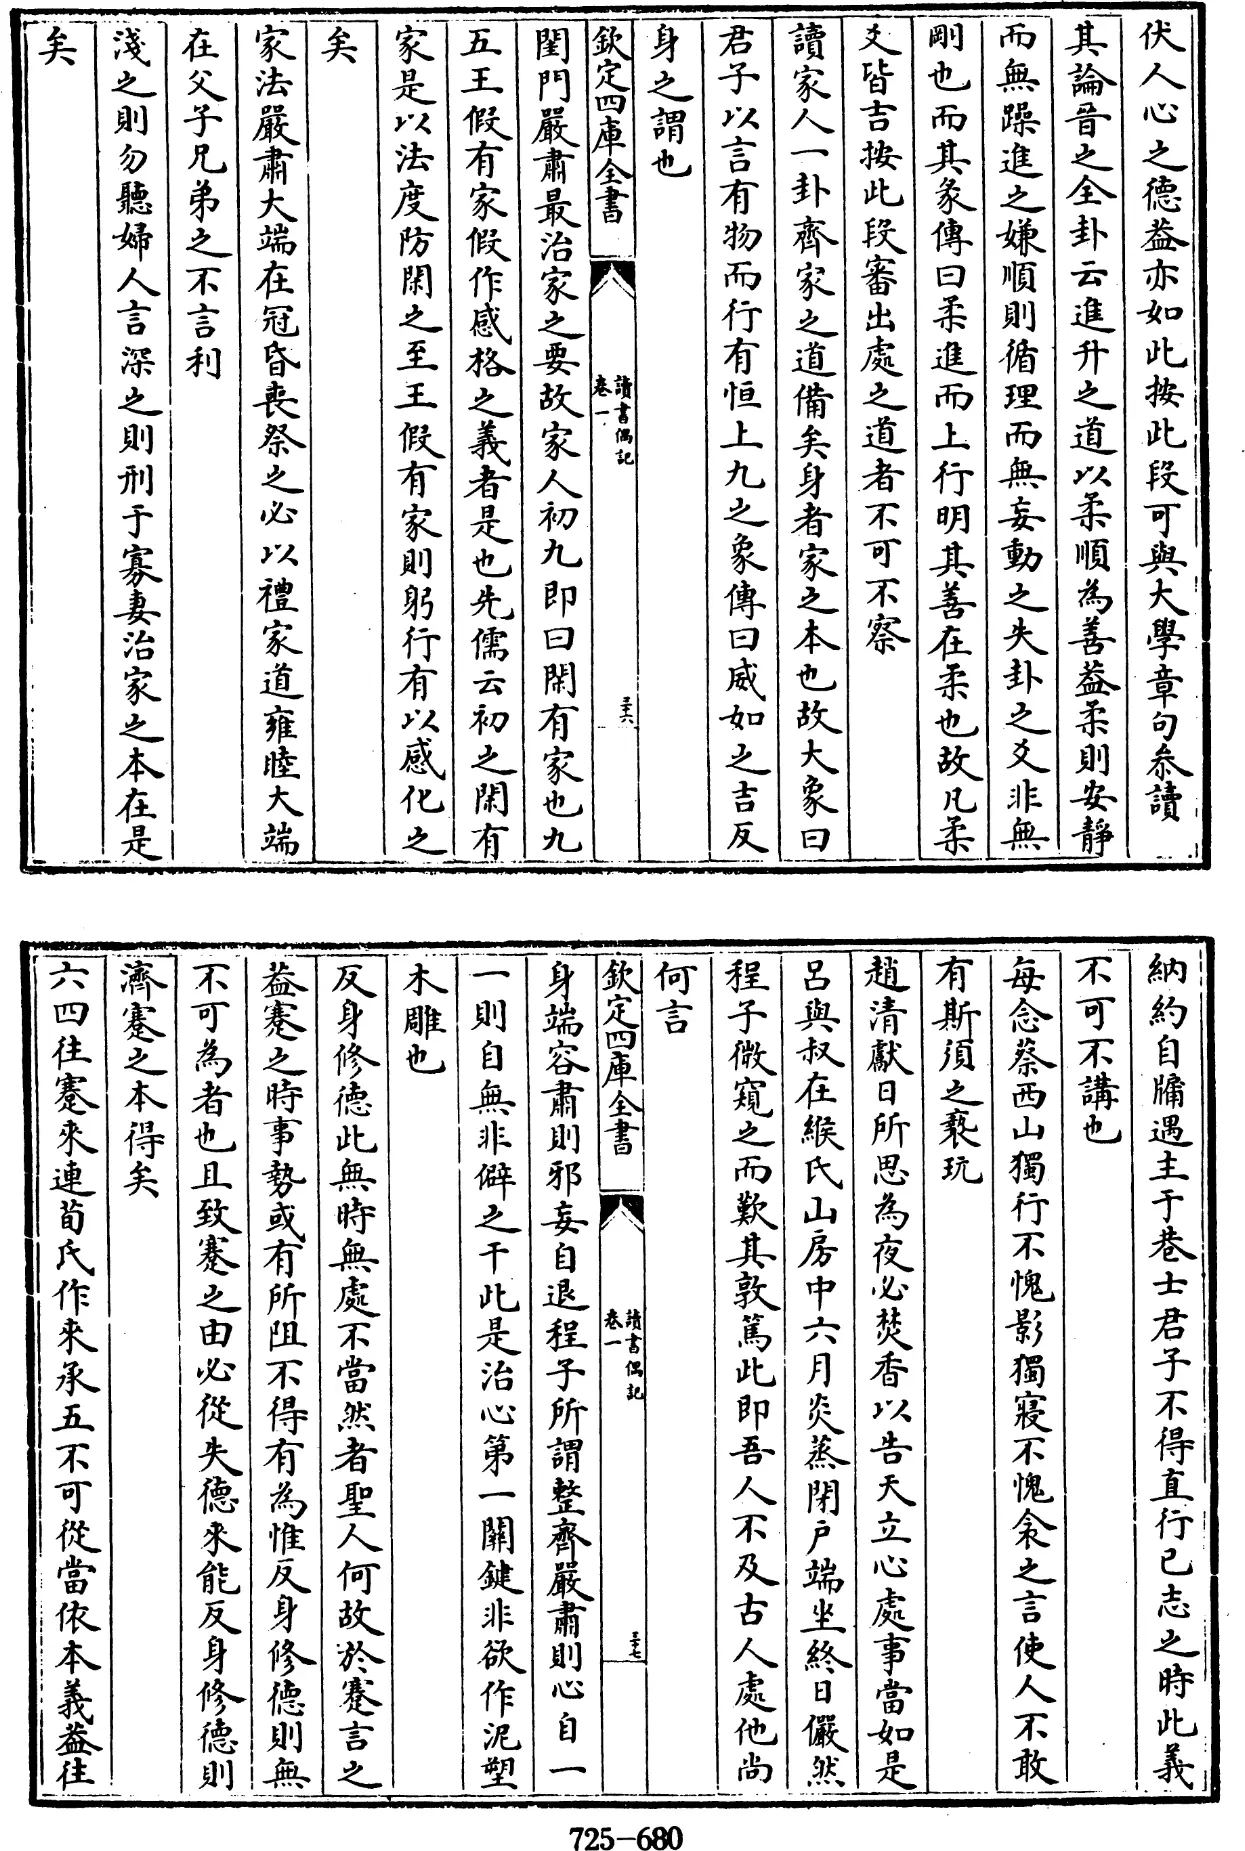 伏人心之德葢亦如此按此段可與大學章句叅讀
其論晉之全卦云進升之道以柔順為善葢柔則安靜
而無躁進之嫌順則循理而無妄動之失卦之爻非無
剛也而其彖傳曰柔進而上行明其善在柔也故凡柔
爻皆吉按此段審出處之道者不可不察
讀家人一卦齊家之道備矣身者家之本也故大象曰
君子以言有物而行有恒上九之象傳曰威如之吉反
身之謂也
欽定四庫全書
讀書偶記
卷一
三十六
閨門嚴肅最治家之要故家人初九即曰閑有家也九
五王假有家假作感格之義者是也先儒云初之閑有
家是以法度防閑之至王假有家則躬行有以感化之
矣
家法嚴肅大端在冠昏喪祭之必以禮家道雍睦大端
在父子兄弟之不言利
淺之則勿聽婦人言深之則刑于寡妻治家之本在是
矣
納約自牖遇主于巷士君子不得直行已志之時此義
不可不講也
每念蔡西山獨行不愧影獨寢不愧衾之言使人不敢
有斯須之褻玩
趙清獻日所思為夜必焚香以告天立心處事當如是
呂與叔在緱氏山房中六月炎蒸閉户端坐終日儼然
程子微窺之而歎其敦篤此即吾人不及古人處他尚
何言
欽定四庫全書
讀書偶記
卷一
三十七
身端容肅則邪妄自退程子所謂整齊嚴肅則心自一
一則自無非僻之干此是治心第一關鍵非欲作泥塑
木雕也
反身修德此無時無處不當然者聖人何故於蹇言之
葢蹇之時事勢或有所阻不得有為惟反身修德則無
不可為者也且致蹇之由必從失德來能反身修德則
濟蹇之本得矣
六四往蹇來連荀氏作來承五不可從當依本義葢往
725-680